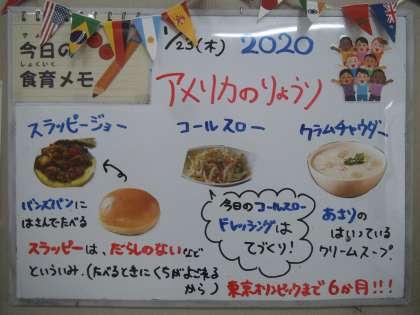 今日の
しょくいく
食育メモ
1/23(木) 2020
アメリカのりょうり
スラッピージョー
コールスロー
クラムチャウダー
バンズパンに
はさんでたべる
今日のコールスロー
ドレッシングは
てづくり!
あさりの
はいっている
クリームスープ
スラッピーは、だらしのないなど
といういみ.(たべるときにくちがよごれる
から)
東京オリンピックまで6か月!!!